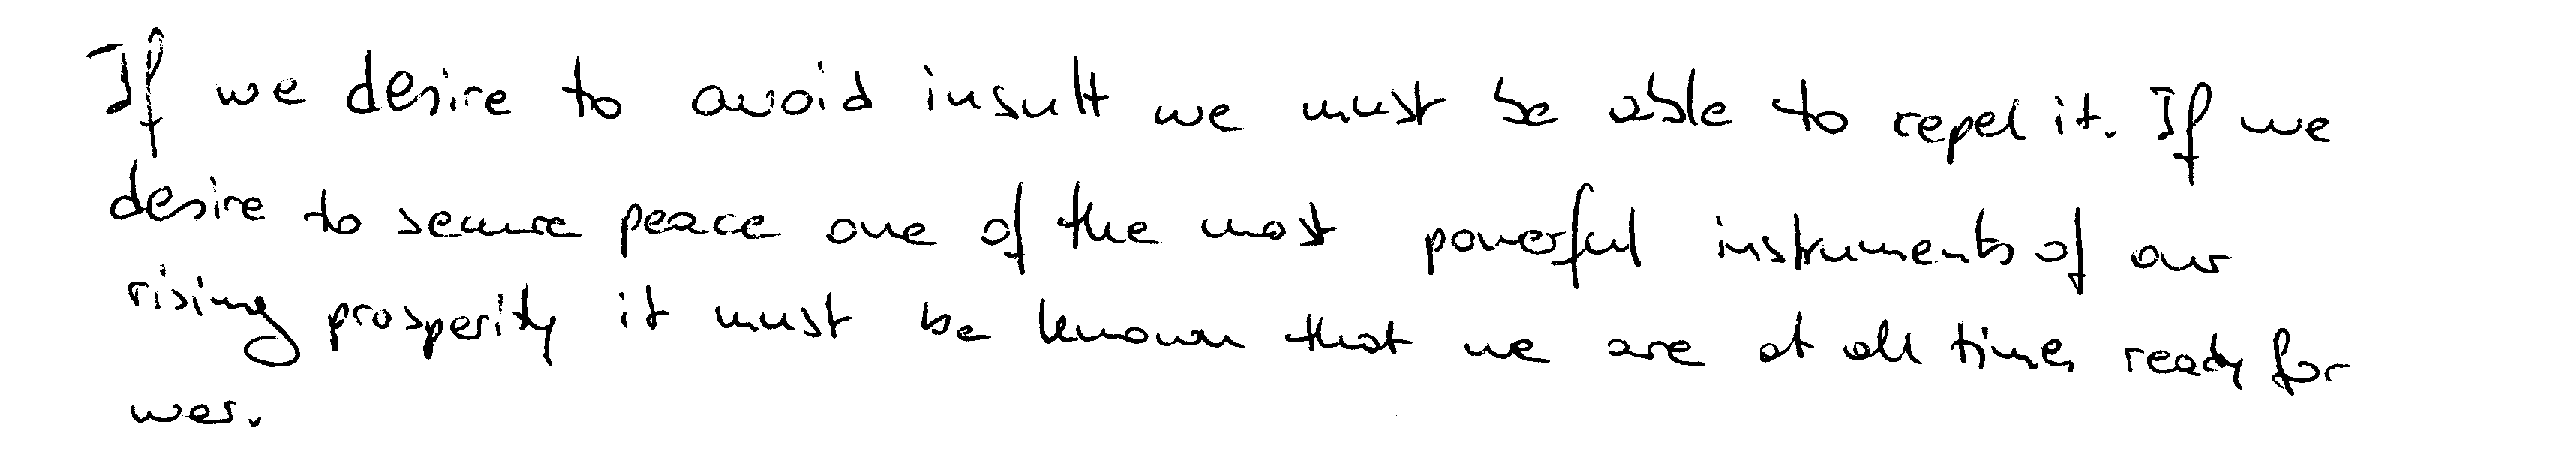 If we desire to avoid insult we must be able to repel it. If we
desire to secure peace one of the most powerful instruments of our
rising prosperity it must be known that we are at all times ready for
war.